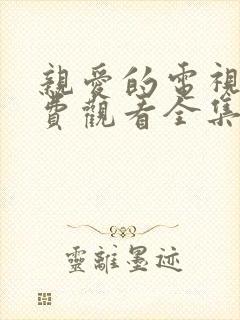 親愛的電視
費觀看全集
靈離墨迹